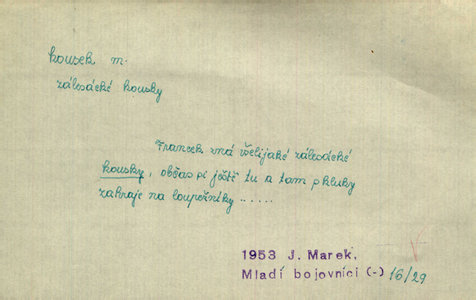 kousek m.
zálesácké kousky
Francek zná všelijaké zálesácké
kousky, občas si ještě tu a tam s kluky
zahraje na loupežníky .....
1953 J. Marek,
Mladí bojovníci (-) 16/29